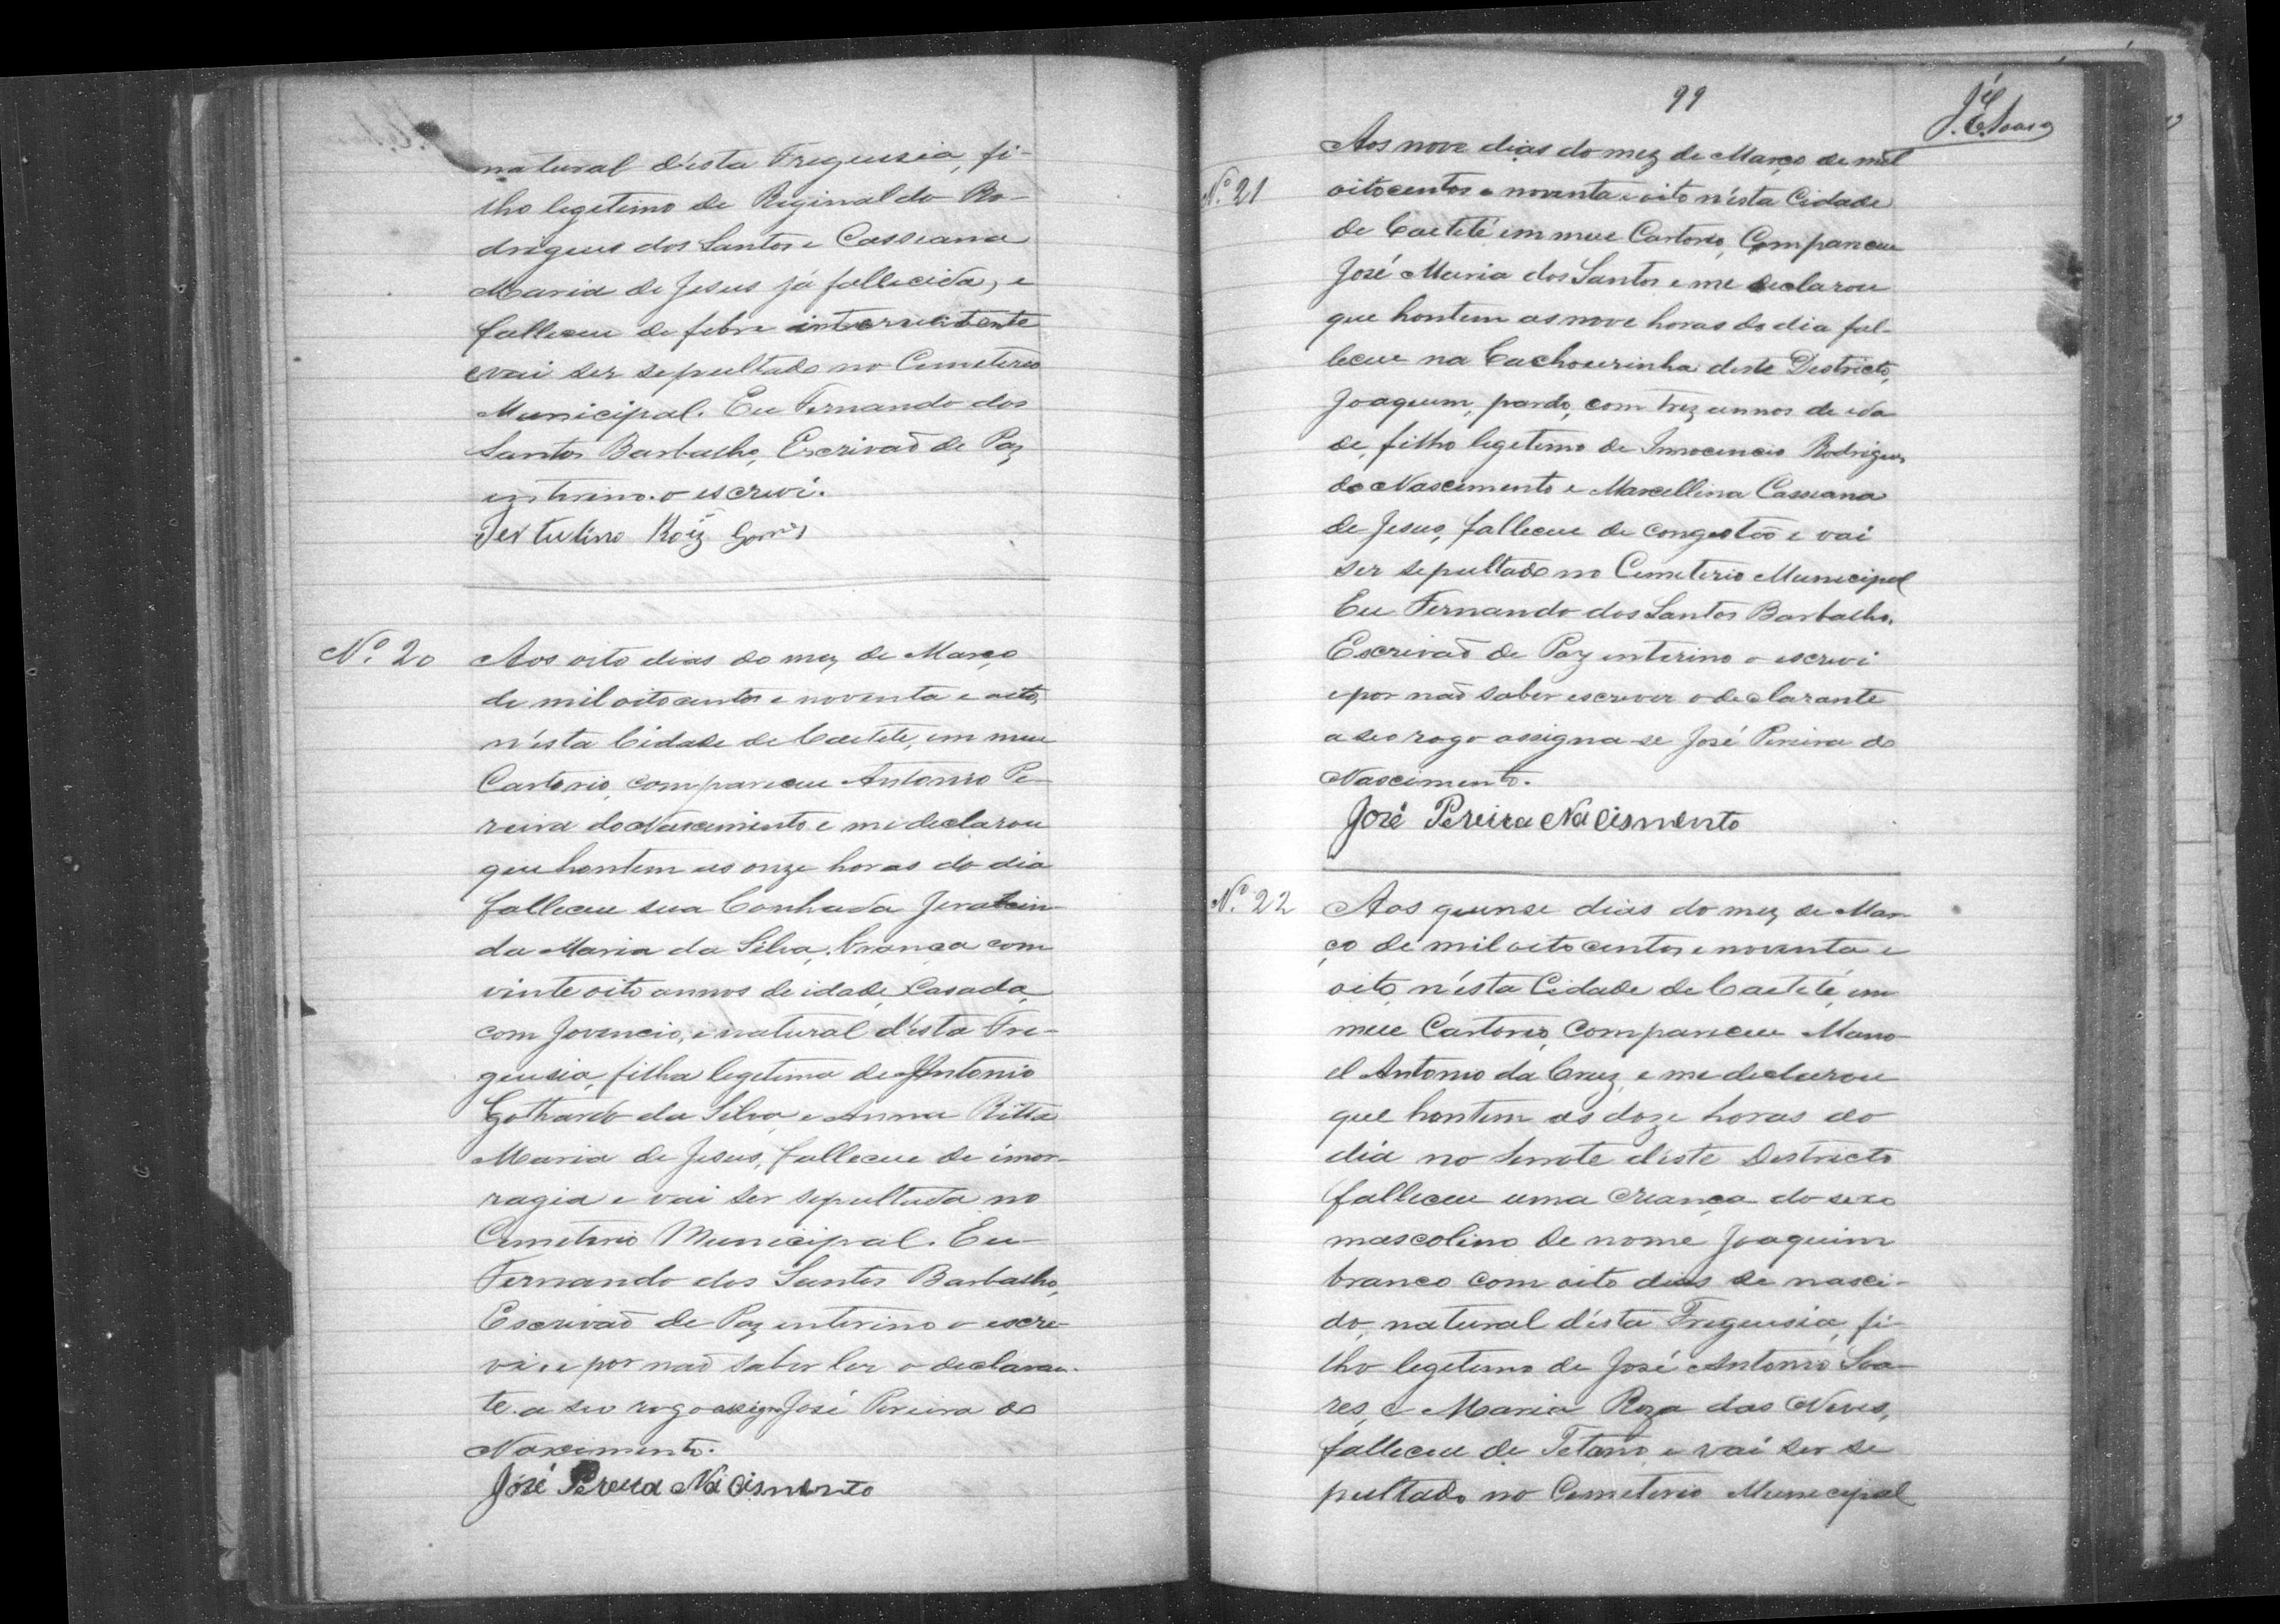 natural d'esta Freguesia, fi-
lho legetimo de Riginaldo Ro-
drigues dos Santos e Cassiana
Maria de Jesus já fallecida, e
falleceu de febre intermitente
e vai ser sepultado no Cemeterio
Municipal. Eu Fernando dos
Santos Barbalho, Escrivaõ de Paz
enterino o escrevi.
Tertulino Roiz Gomes
Nº. 20
Aos oito dias do mez de Março
de mil oito centos e noventa e oito,
n'ésta Cidade de Caeteté, em meu
Cartorio, compareceu Antonio Pe-
reira do Nascimento e me declarou
que hontem as onze horas do dia
falleceu sua Conhada
da Maria da Silva, branca com
vinte oito annos de idade, Casada,
com Jovencio, e natural d'ésta Fre-
guesia, filha legetima de Antonio
Gothardo da Silva, e Anna Ritta
Maria de Jesus, falleceu de imor-
ragia e vai ser sepultada no
Cemeterio Municipal. Eu
Fernando dos Santos Barbalho,
Escrivaõ de Paz enterino o escre-
vi. e por naõ saber ler o declaran-
te. a seo rogo assigna José Pereira do
Nascimento.
José Pereira Nacismento
99
J. E. Soares
Nº. 21
Aos nove dias do mez de Março de mil
oitocentos e noventa e oito n'ésta Cidade
de Caeteté em meu Cartorio, Compareceu
José Maria dos Santos e me declarou
que hontem as nove horas do dia fal-
leceu na Cachoeirinha deste Destricto,
Joaquim, pardo, com trez annos de ida
de, filho legetimo de Innocencio Rodrigues
do Nascimento e Marcellina Cassiana
de Jesus, falleceu de congestaõ e vai
ser sepultado no Cemeterio Municipal
Eu Fernando dos Santos Barbalho.
Escrivaõ de Paz enterino o escrevi
e por naõ saber escrever o declarante
a seo rogo assigna-se José Pereira do
Nascimento.
José Pereira Nacismento
Nº. 22
Aos quinse dias do mez de Mar-
ço de mil oito centos e noventa e
oito, n'ésta Cidade de Caeteté, em
meu Cartorio, Compareceu Mano-
el Antonio da Cruz, e me declarou
que hontem as doze horas do
dia no Serrote d'este Destricto
falleceu uma creança do sexo
mascolino de nome Joaquim
branco com oito dias de nasci-
do, natural d'ésta Freguesia, fi-
lho legetimo de José Antonio Soa-
res, e Maria Roza das Neves,
falleceu de Tetano, e vai ser se
pultado no Cemeterio Municepal